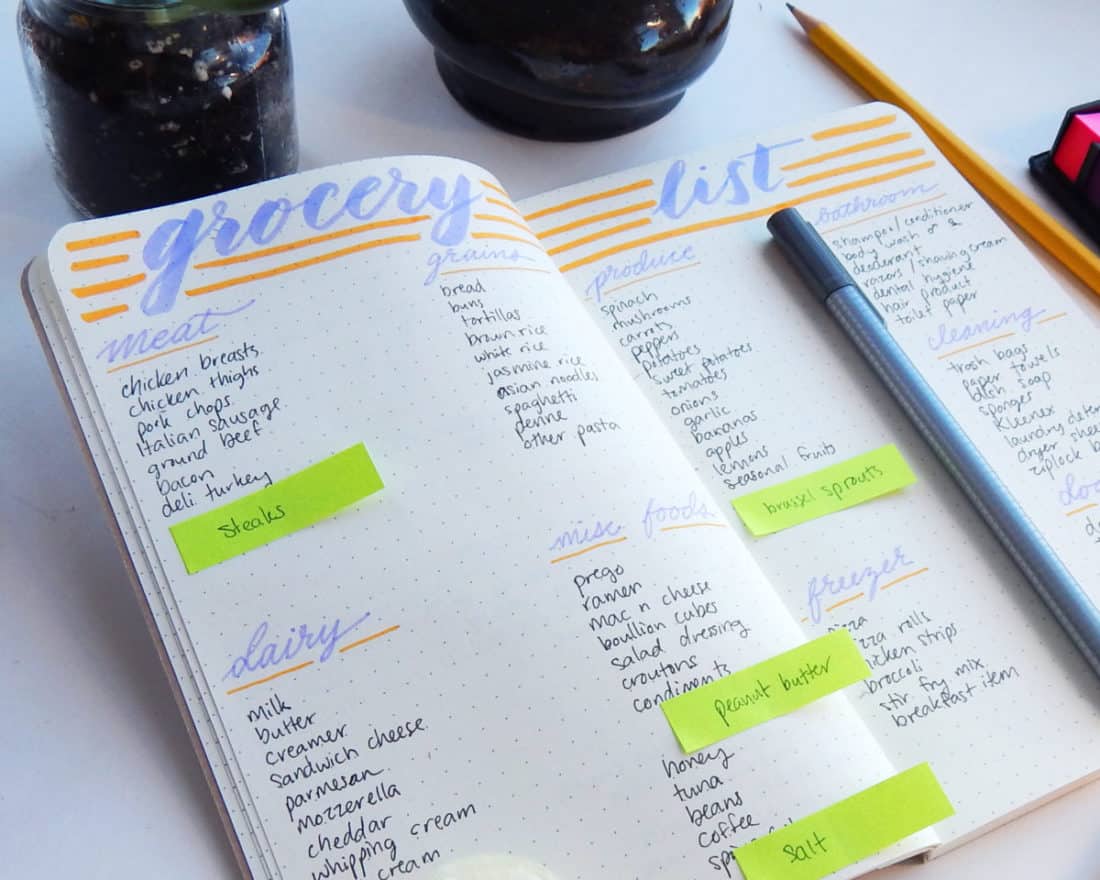 grocery
list
meat
chicken breasts
chicken thighs
pork chops
Italian sausage
ground beef
bacon
deli turkey
steaks
dairy
milk
butter
creamer
sandwich cheese
parmesan
mozzerella
cheddar
whipping cream
cream
grains
bread
buns
tortillas
brown rice
white rice
jasmine rice
asian noodles
spaghetti
penne
other pasta
misc foods
prego
ramen
mac n cheese
boullion cubes
salad dressing
croutons
condiments
peanut butter
honey
tuna
beans
coffee
salt
produce
spinach
mushrooms
carrots
peppers
potatoes
sweet potatoes
tomatoes
onions
garlic
bananas
apples
lemons
seasonal fruits
brussel sprouts
freezer
rolls
strips
broccoli
stir fry mix
breakfast item
bathroom
shampoo/conditioner
body wash
deodorant
razors/shaving cream
dental hygiene
hair product
toilet paper
cleaning
trash bags
paper towels
dish soap
sponges
Kleenex
laundry
dryer
ziplock